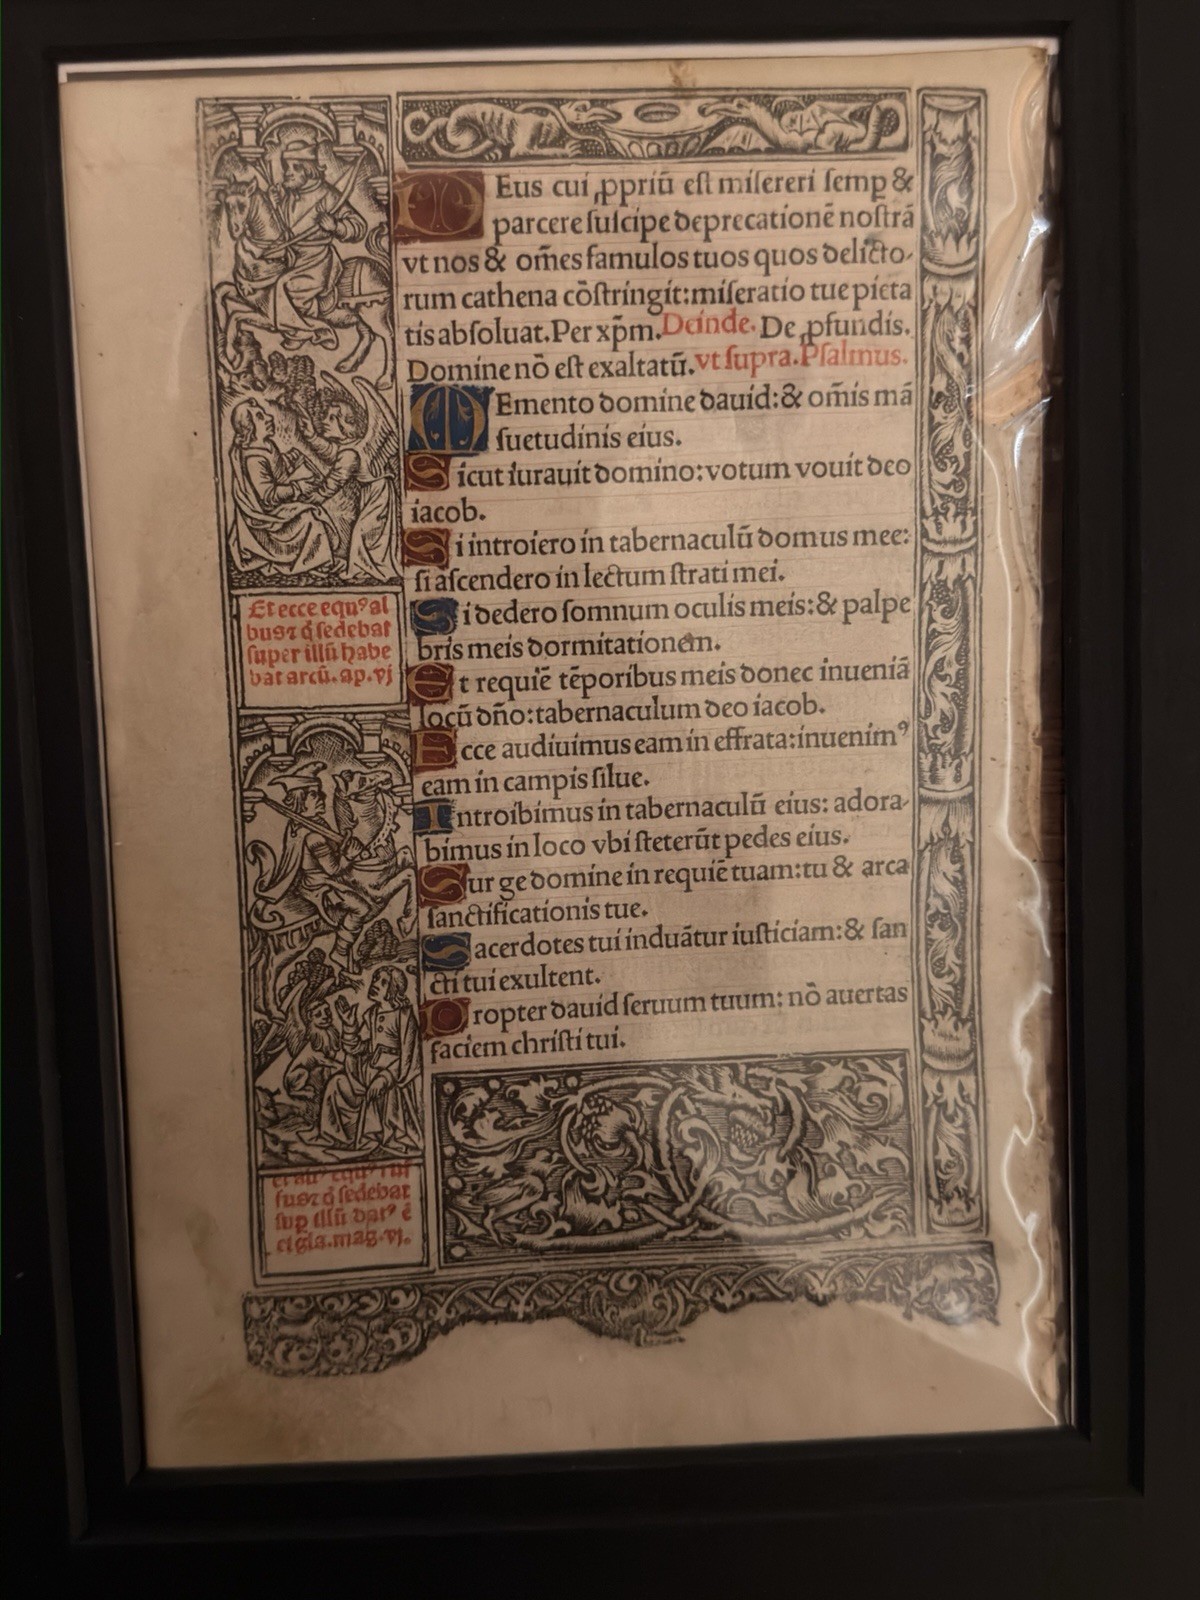 DEus cui ꝓpriū est misereri semꝑ &
parcere suscipe deprecationē nostrā
vt nos & om̄es famulos tuos quos delicto-
rum cathena cōstringit: miseratio tue pieta
tis absoluat. Per xp̄m. Deinde. De ꝓfundis.
Domine nō est exaltatū. vt supra. Psalmus.
MEmento domine dauid: & om̄is mā
suetudinis eius.
Sicut iurauit domino: votum vouit deo
iacob.
Si introiero in tabernaculū domus mee:
si ascendero in lectum strati mei.
Si dedero somnum oculis meis: & palpe
bris meis dormitationem.
Et requiē tēporibus meis donec inueniā
locū dn̄o: tabernaculum deo iacob.
Ecce audiuimus eam in effrata: inuenimꝰ
eam in campis silue.
Introibimus in tabernaculū eius: adora-
bimus in loco vbi steterūt pedes eius.
Surge domine in requiē tuam: tu & arca
sanctificationis tue.
Sacerdotes tui induātur iusticiam: & san
cti tui exultent.
Propter dauid seruum tuum: nō auertas
faciem christi tui.
Et ecce equꝰ al
bus ⁊ q̄ sedebat
super illū habe
bat arcū. ap. vj
Et aliꝰ equꝰ ruf
fus ⁊ q̄ sedebat
sup illū datꝰ ē
ei gla. mag. vj.